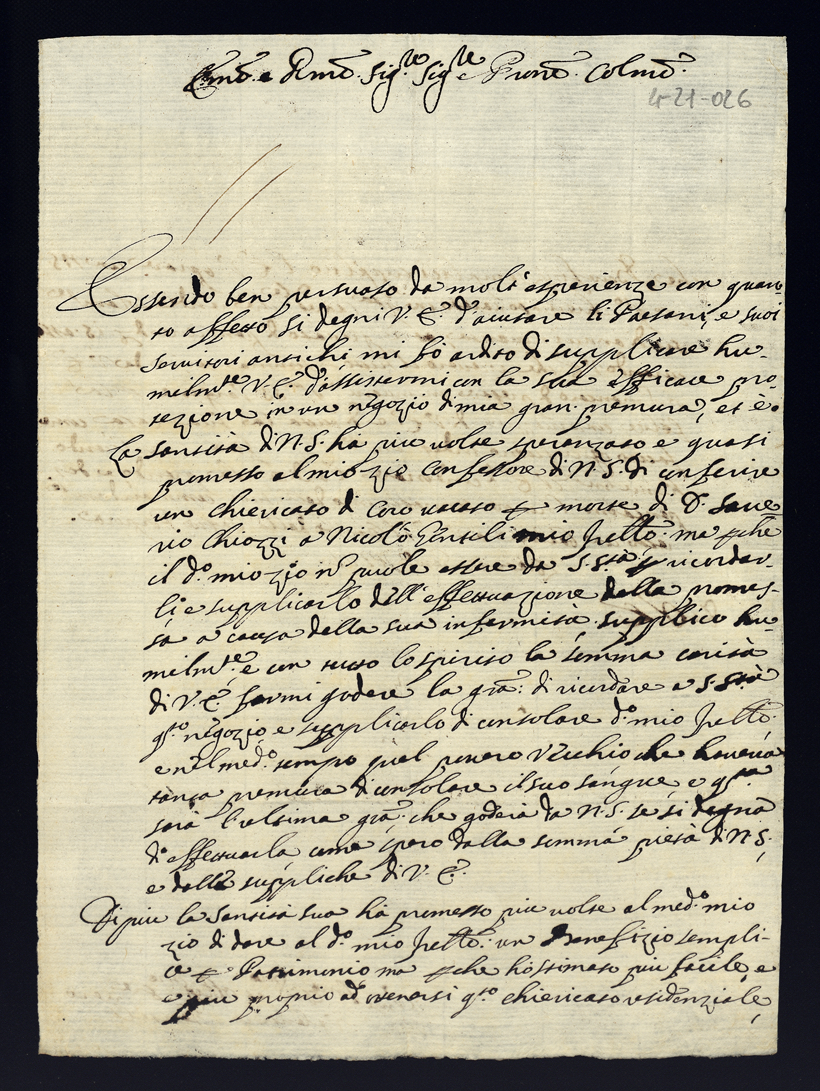 Emo. e Rmo. Sig.re Sig.re e Prone. Colmo.
4-21-026
Essendo ben persuaso da molt'esperienze con quan
to affetto si degni V. E. d'aiutare li Paesani, e suoi
servitori antichi, mi fò ardito di supplicare hu-
milmte. V. E. d'assistermi con la sua efficace pro-
tezione in un negozio di mia gran premura, et è.
La Santità di N. S. hà più volte speranzato e quasi
promesso al mio zio Confessore di N. S. di conferire
un chiericato di Coro vacato p morte di D. Save
rio Chiozzi a Nicolò Gentili mio frello. ma pche
il do. mio zio no puole essere da S. Stà p ricordar-
li e supplicarlo dell'effettuazione della promes-
sa a causa della sua infermità supplico hu-
milmte. e con tutto lo spirito la somma carità
di V. E. farmi godere la gra: di ricordare a S. Stà
qto. negozio e supplicarlo di consolare do. mio frello.
e nel medo. tempo quel povero Vecchio che haveria
tanta premura di consolare il suo sangue, e qsta.
sarà l'ultima gra: che goderà da N. S. se si degna
di effettuarla come spero dalla somma pietà di N. S.
e dalle suppliche di V. E.
Di più la Santità Sua hà promesso più volte al medo. mio
zio di dare al do. mio frello: un Benefizio sempli-
ce p Patrimonio ma pche hò stimato più facile, e
e più proprio ad ottenersi qto. chiericato residenziale,